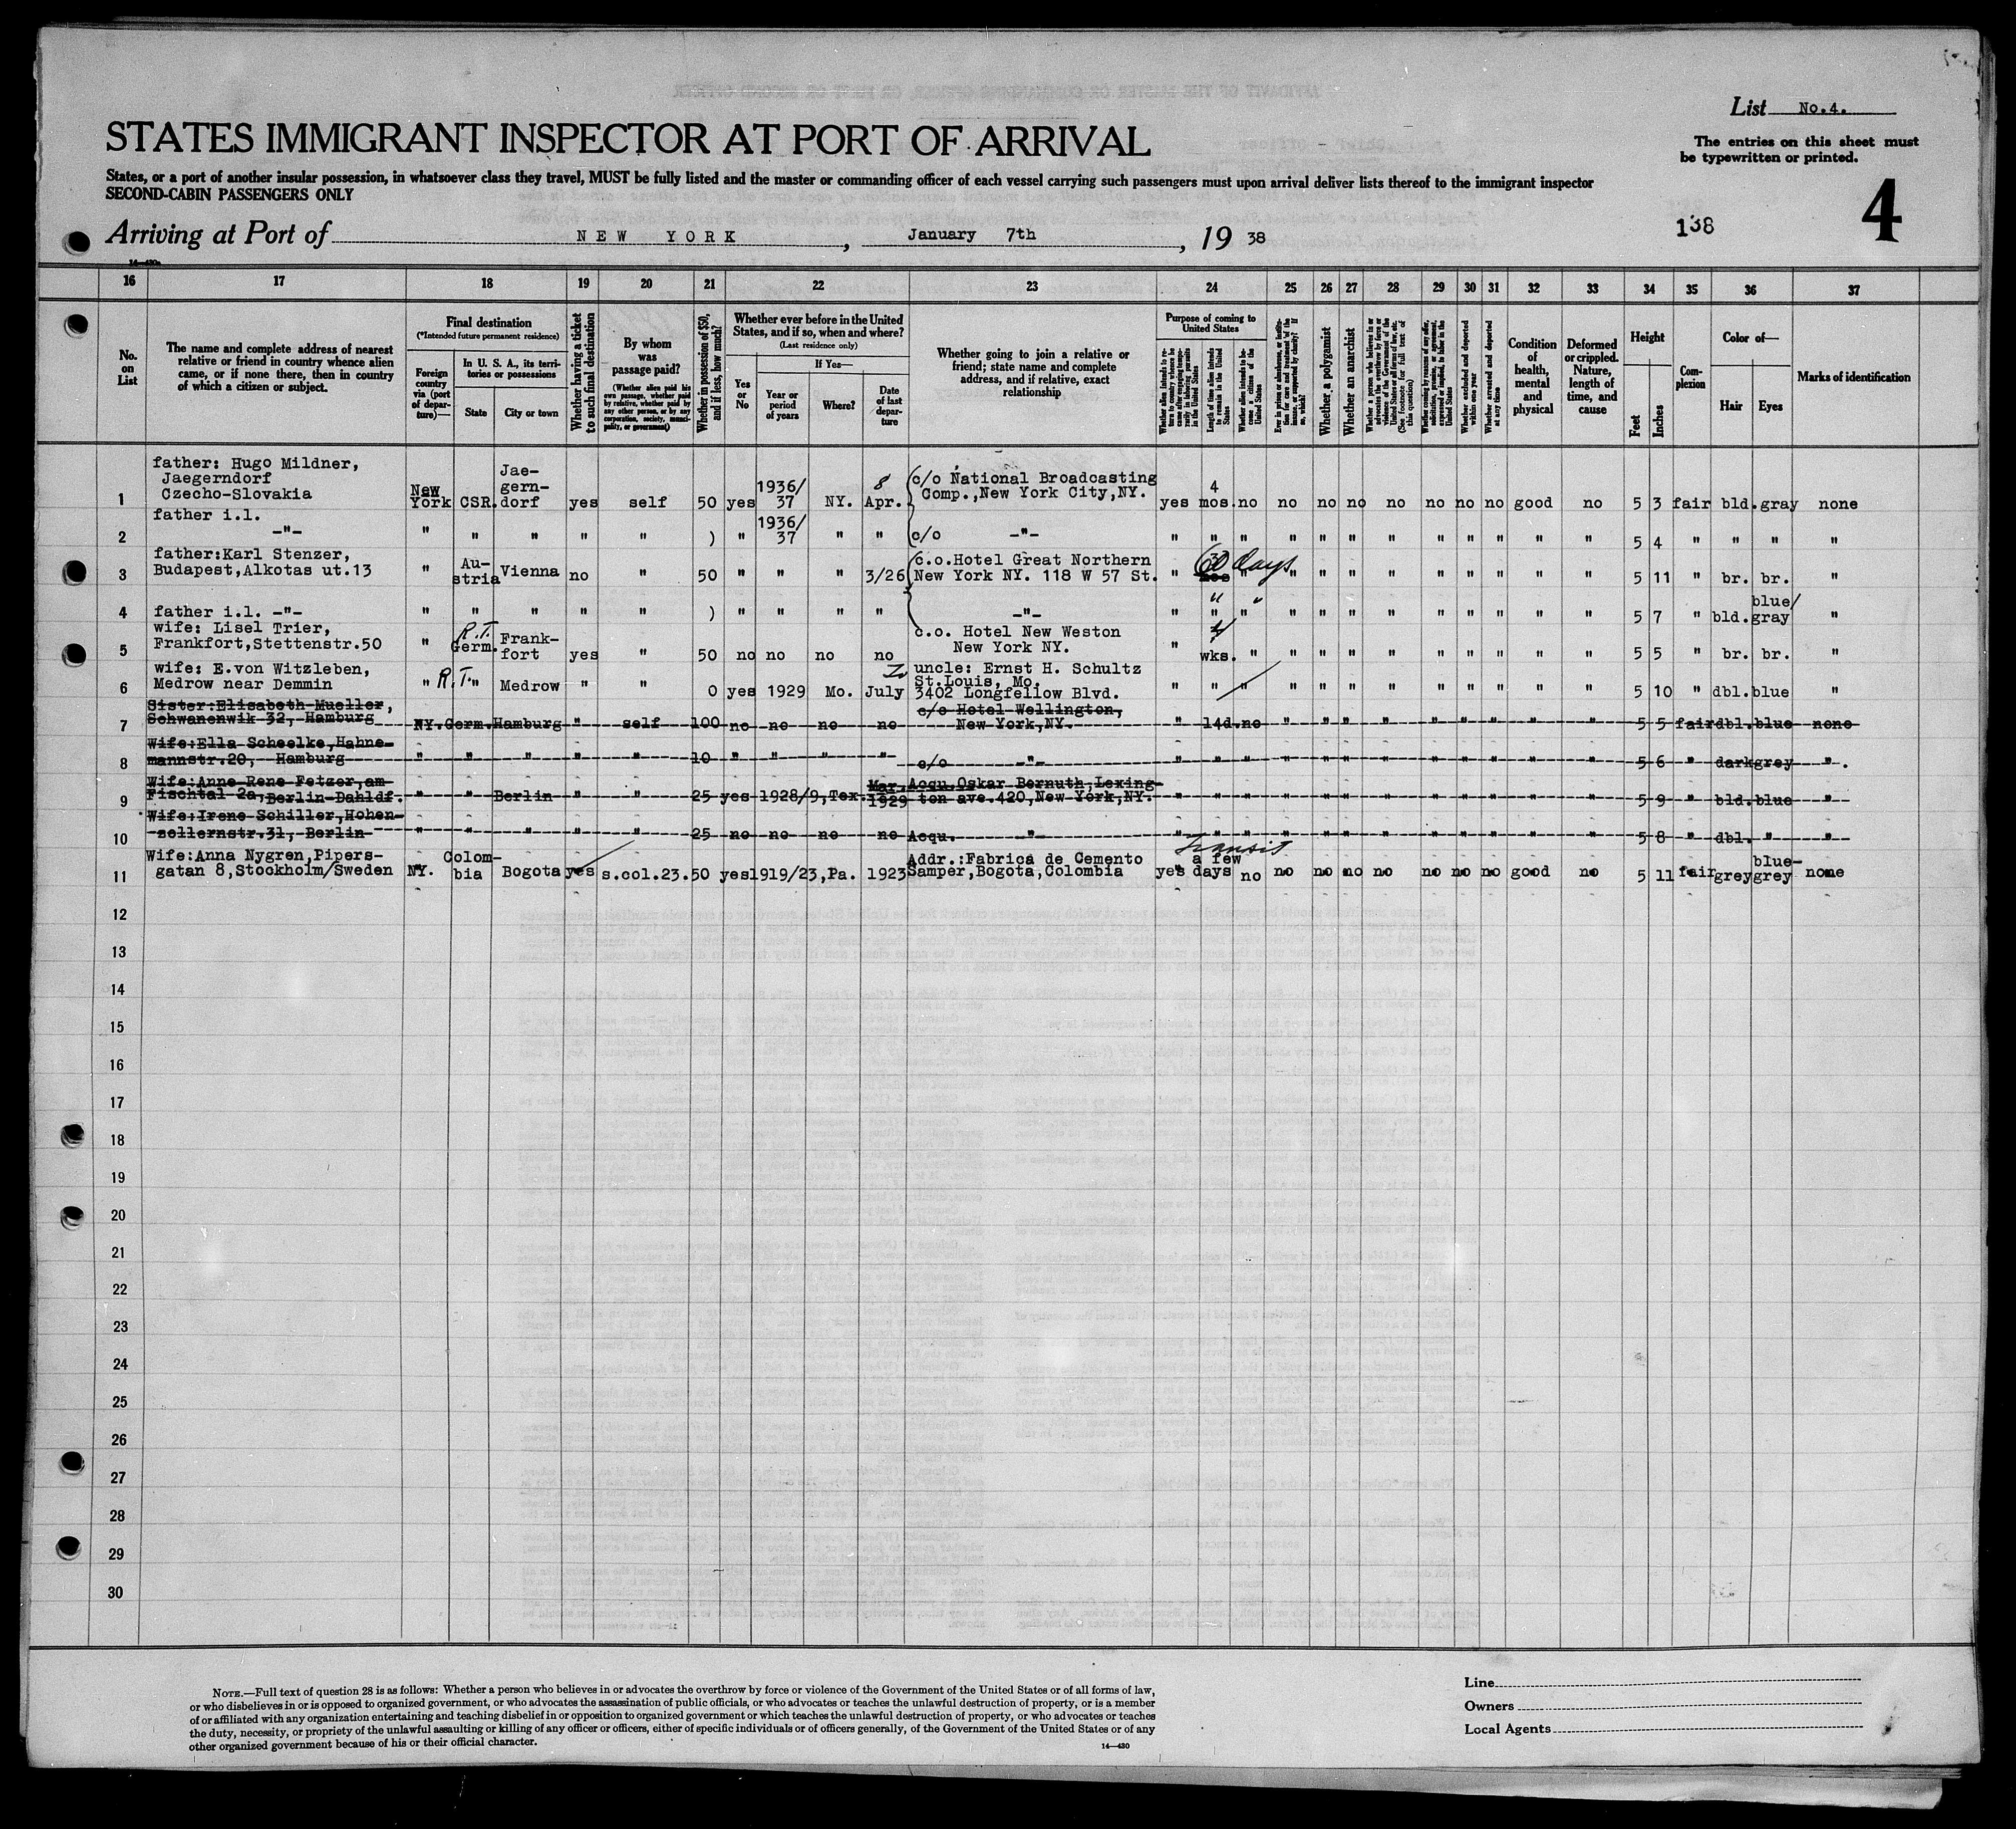 List No.4.
STATES IMMIGRANT INSPECTOR AT PORT OF ARRIVAL
The entries on this sheet must
be typewritten or printed.
States, or a port of another insular possession, in whatsoever class they travel, MUST be fully listed and the master or commanding officer of each vessel carrying such passengers must upon arrival deliver lists thereof to the immigrant inspector
SECOND-CABIN PASSENGERS ONLY
138
4
Arriving at Port of NEW YORK, January 7th, 19 38
16 17 18 19 20 21 22 23 24 25 26 27 28 29 30 31 32 33 34 35 36 37
No. on List
The name and complete address of nearest relative or friend in country whence alien came, or if none there, then in country of which a citizen or subject.
Final destination
(*Intended future permanent residence)
Foreign country via (port of departure)—
In U. S. A., its territories or possessions
State
City or town
Whether having a ticket to such final destination
By whom was passage paid?
(Whether alien paid his own passage, whether paid by relative, whether paid by any other person, or by any corporation, society, municipality, or government)
Whether in possession of $50, and if less, how much?
Whether ever before in the United States, and if so, when and where?
(Last residence only)
Yes or No
If Yes—
Year or period of years
Where?
Date of last departure
Whether going to join a relative or friend; state name and complete address, and if relative, exact relationship
Purpose of coming to United States
Length of time alien intends to remain in the United States
Whether alien intends to become a citizen of the United States
Whether a polygamist
Whether an anarchist
Whether excluded and deported within one year
Whether arrested and deported at any time
Condition of health, mental and physical
Deformed or crippled. Nature, length of time, and cause
Height
Feet
Inches
Complexion
Color of—
Hair
Eyes
Marks of identification
1 father: Hugo Mildner, Jaegerndorf Czecho-Slovakia New York CSR. Jaegern-dorf yes self 50 yes 1936/37 NY. 8 Apr. c/o National Broadcasting Comp.,New York City,NY. yes 4 mos. no no no no no no no no good no 5 3 fair bld. gray none
2 father i.l. -"- " " " " " ) " 1936/37 " " c/o -"- " " " " " " " " " " " " 5 4 " " " "
3 father:Karl Stenzer, Budapest,Alkotas ut.13 " Au-stria Vienna no " 50 " " " 3/26 c.o.Hotel Great Northern New York NY. 118 W 57 St. " 60 days " " " " " " " " " " 5 11 " br. br. "
4 father i.l. -"- " " " " " ) " " " " -"- " " " " " " " " " " " " 5 7 " bld. blue/gray "
5 wife: Lisel Trier, Frankfort,Stettenstr.50 " R.T. Germ. Frank-fort yes " 50 no no no no c.o. Hotel New Weston New York NY. " wks. " " " " " " " " " " 5 5 " br. br. "
6 wife: E.von Witzleben, Medrow near Demmin " R.T. " Medrow " " 0 yes 1929 Mo. July uncle: Ernst H. Schultz St.Louis, Mo. 3402 Longfellow Blvd. " " " " " " " " " " " " 5 10 " dbl. blue "
7 Sister:Elisabeth Mueller, Schwanenwik 32, Hamburg NY. Germ. Hamburg " self 100 no no no no c/o Hotel Wellington, New York,NY. " 14d. no " " " " " " " " " 5 5 fair dbl. blue none
8 Wife:Ella Scheelke,Hahne-mannstr.20, Hamburg " " " " " 10 " " " " c/o -"- " " " " " " " " " " " " 5 6 " dark grey " .
9 Wife:Anne Rene Fetzer,am Fischtal 2a,Berlin-Dahldf. " " Berlin " " 25 yes 1928/9,Tex. Mar. 1929 Acqu.Oskar Bernuth,Lexing-ton ave.420,New York,NY. " " " " " " " " " " " " 5 9 " bld. blue "
10 Wife:Irene Schiller,Hohen-zollernstr.31, Berlin " " " " " 25 no no no no Acqu. -"- " " " " " " " " " " " " 5 8 " dbl. " "
11 Wife:Anna Nygren,Pipers-gatan 8,Stockholm/Sweden NY. Colom-bia Bogota yes s.col.23. 50 yes 1919/23,Pa. 1923 Addr.:Fabrica de Cemento Samper,Bogota,Colombia yes transit a few days no no no no no no no no good no 5 11 fair grey blue-grey none
12
13
14
15
16
17
18
19
20
21
22
23
24
25
26
27
28
29
30
NOTE.—Full text of question 28 is as follows: Whether a person who believes in or advocates the overthrow by force or violence of the Government of the United States or of all forms of law,
or who disbelieves in or is opposed to organized government, or who advocates the assassination of public officials, or who advocates or teaches the unlawful destruction of property, or is a member
of or affiliated with any organization entertaining and teaching disbelief in or opposition to organized government or which teaches the unlawful destruction of property, or who advocates or teaches
the duty, necessity, or propriety of the unlawful assaulting or killing of any officer or officers, either of specific individuals or of officers generally, of the Government of the United States or of any
other organized government because of his or their official character.
14—430
Line
Owners
Local Agents